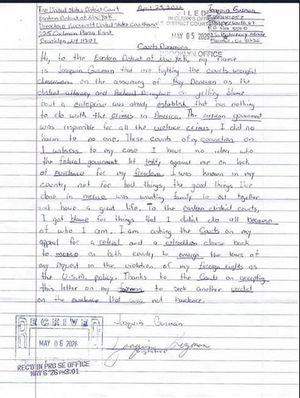 US District Court April 23, 2026 Joaquin Guzman
Eastern District of New York
Theodore Roosevelt United States Courthouse
225 Cadman Plaza East
Brooklyn, NY 11201
FILED
IN CLERK'S OFFICE
MAY 05 2026
BROOKLYN OFFICE
Hi, to the Eastern District of New York, my name
is Joaquin Guzman that are fighting the courts wrongful
on the assuming of Ray Donovan as the
district attorney and Richard Donoghue of getting blame
but a enterprise was already establish that has nothing
to do with the crimes in America. The government
was responsible for all the crimes, I did no
harm to no one. These counts of my conviction on
witness to my case I have no one who
the federal government let against me on lack
of evidence for my freedom. I was known in my
country not for bad things, the good things I've
done in mexico was wanting family to eat together
and have a great life. To the eastern district courts,
I got blame for things that I didnt do all because
of who I am. I am asking the Courts on my
appeal for a retrial and a extradition clause back
to mexico as both country to the laws of
my request in the violation of my foreign rights as
the U.S.A. policy. Thanks to the Courts on accepting
this letter on my to seek another verdict
on the evidence that was not
Joaquin Guzman
Joaquin Guzman
RECEIVED
MAY 05 2026
REC'D IN PRO SE OFFICE
MAY 5 '26